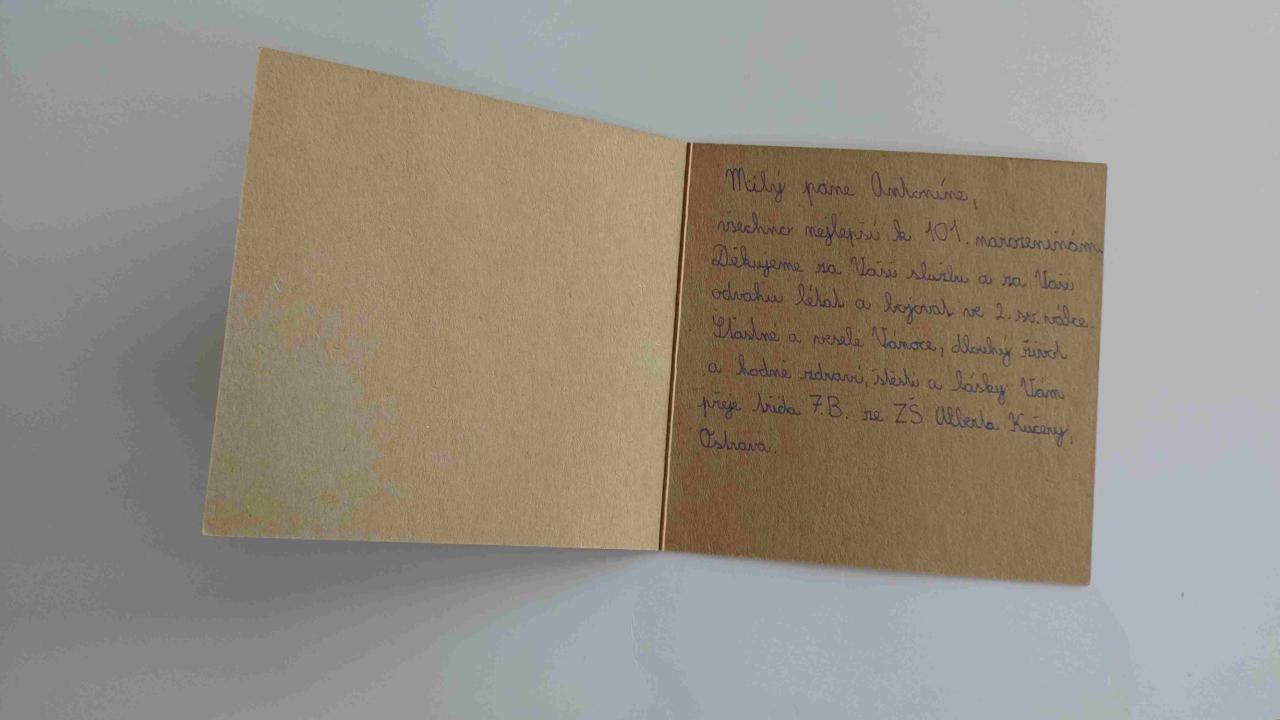 Milý pane Antoníne,
všechno nejlepší k 101. narozeninám.
Děkujeme za Vaši službu a za Vaši
odvahu létat a bojovat ve 2. sv. válce.
Šťastné a veselé Vánoce, dlouhý život
a hodně zdraví, štěstí a lásky Vám
přeje třída 7.B. ze ZŠ Alberta Kučery,
Ostrava.